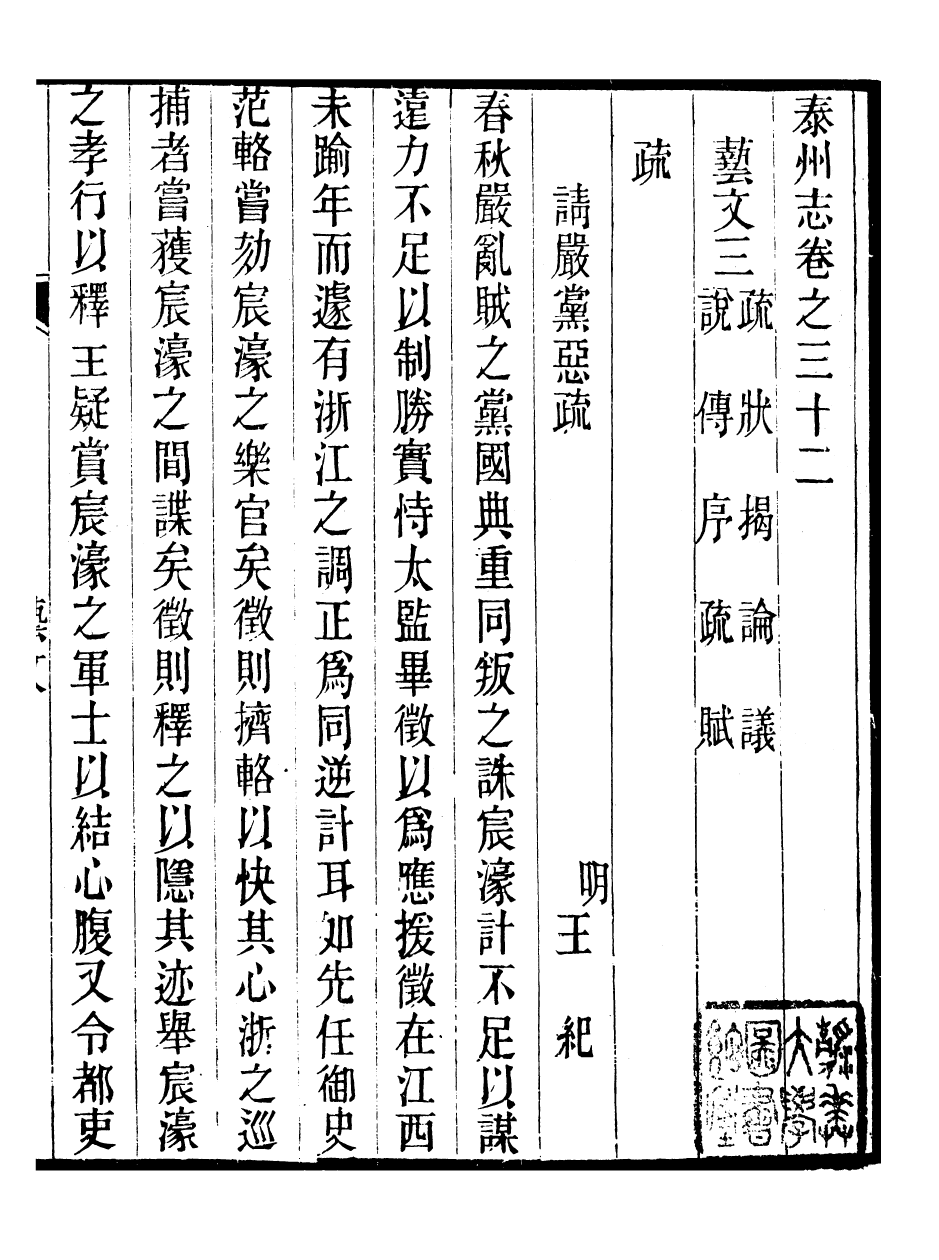 泰州志卷之三十二
藝文三 疏 狀 揭 論 議
說 傳 序 疏 賦
疏
請嚴黨惡疏 明王 紀
春秋嚴亂賊之黨國典重同叛之誅宸濠計不足以謀
遠力不足以制勝實恃太監畢徵以爲應援徵在江西
未踰年而遽有浙江之調正爲同逆計耳如先任御史
范輅嘗劾宸濠之樂官矣徵則擠輅以快其心浙之巡
捕者嘗獲宸濠之間諜矣徵則釋之以隱其迹舉宸濠
之孝行以釋王疑賞宸濠之軍士以結心腹又令都吏
大學
圖書